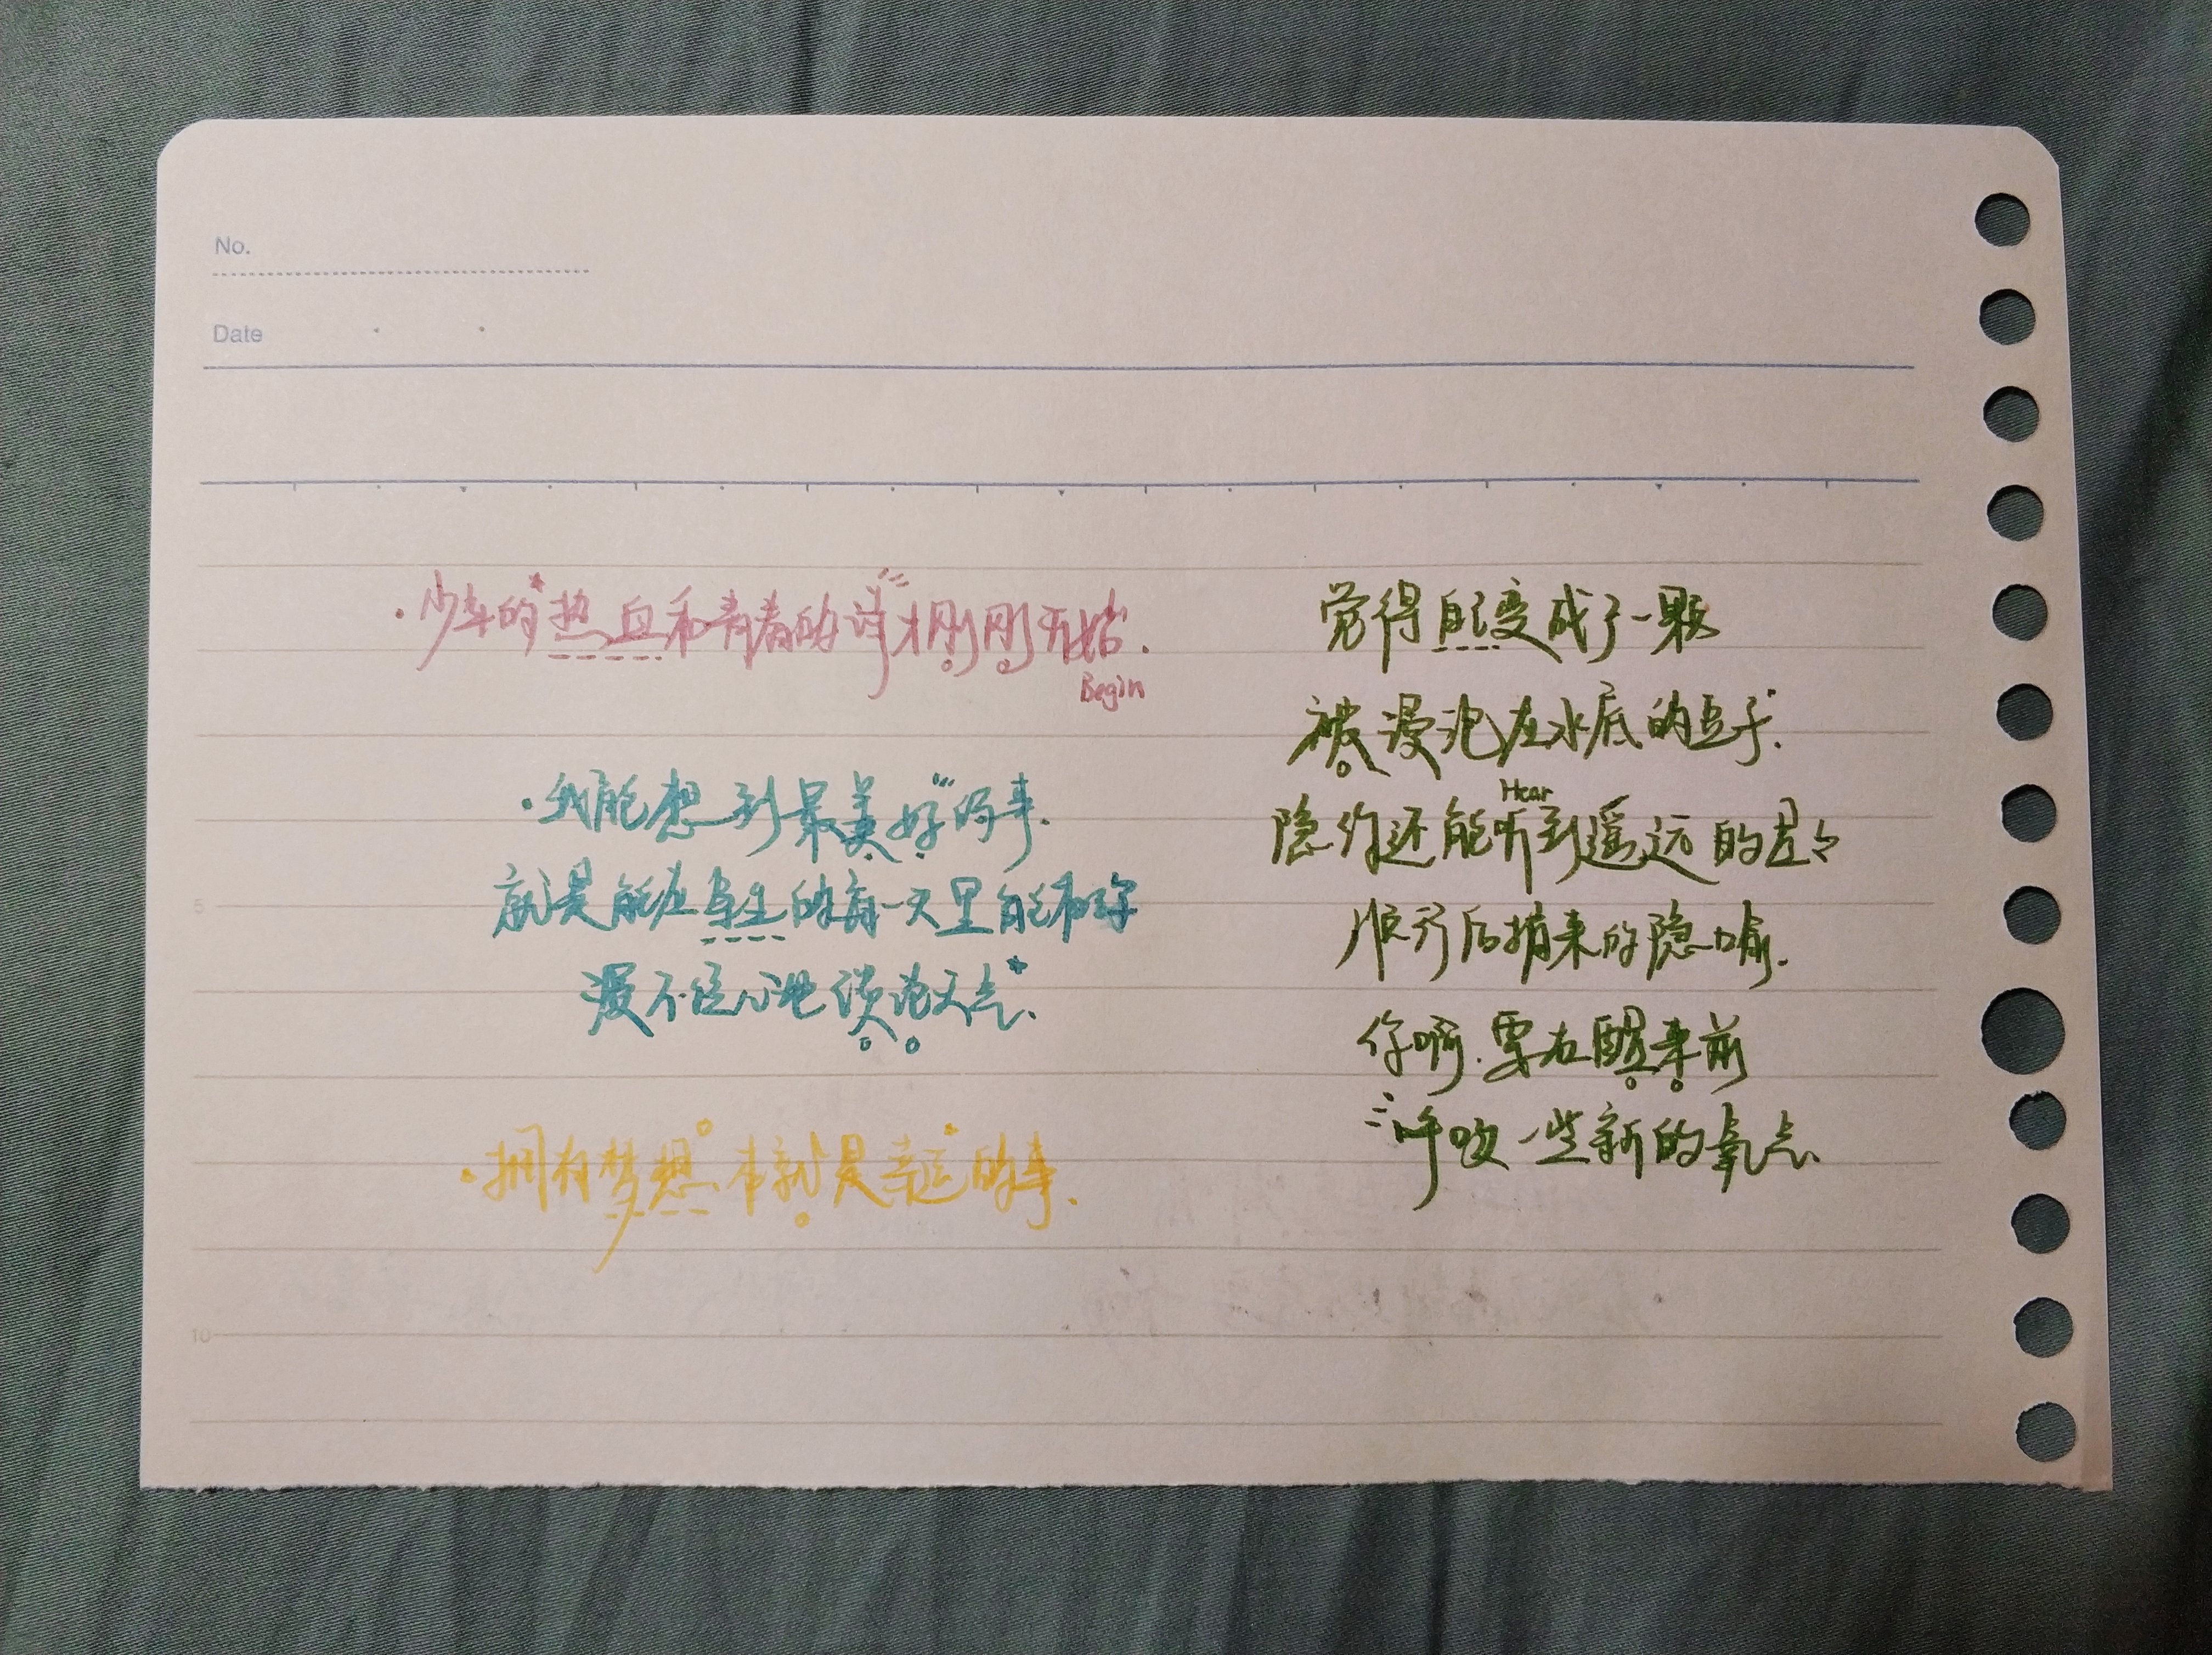 No.
Date
·少年的热血和青春的诗才刚刚开始.
Begin
·我能想到最美好的事.
就是能在余生的每一天里能和你
漫不经心地谈论天气.
·拥有梦想本就是幸运的事.
觉得自己变成了一颗
被浸泡在水底的豆子.
Hear
隐约还能听到遥远的星々
顺着后捎来的隐喻.
你啊.要在醒来前
呼吸一些新的氧气.
5
10